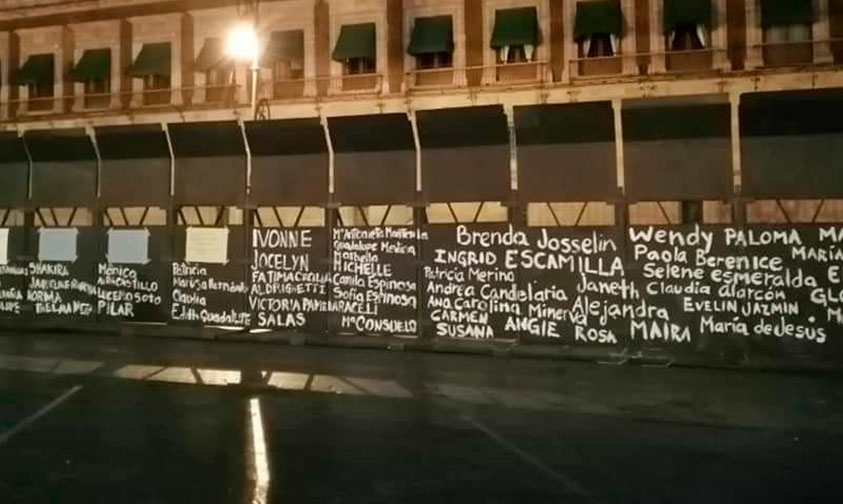 SHAKIRA
NORMA
Mónica
Lucero Soto
PILAR
Patricia
Marisa Hernández
Claudia
Edith Guadalupe
IVONNE
JOCELYN
FATIMA CECILIA
ALDRIGHETTI
VICTORIA PAMELA
SALAS
Mª Antonieta
Guadalupe Medina
Marbella
MICHELLE
Camila Espinosa
Sofia Espinosa
ARACELI
Mª CONSUELO
Brenda Josselin
INGRID ESCAMILLA
Patricia Merino
Andrea Candelaria Janeth
Ana Carolina Minerva Alejandra
CARMEN
SUSANA ANGIE ROSA
Wendy PALOMA MA
Paola Berenice MARÍA
Selene esmeralda E
Claudia alarcón GLO
EVELIN JAZMIN
MAIRA María de Jesus